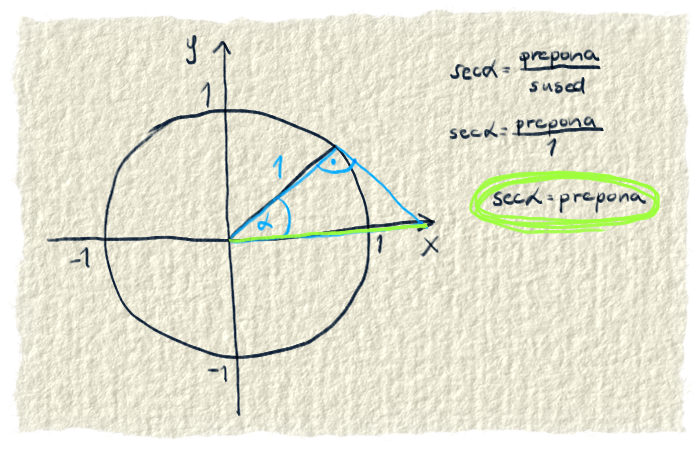 y
1
1
α
-1
1
x
-1
secα = prepona / sused
secα = prepona / 1
secα = prepona